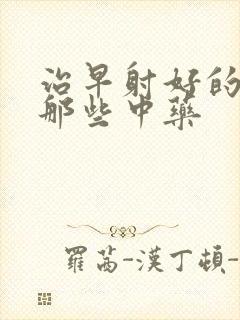 治早射好的
那些中藥
羅茜-漢丁頓-